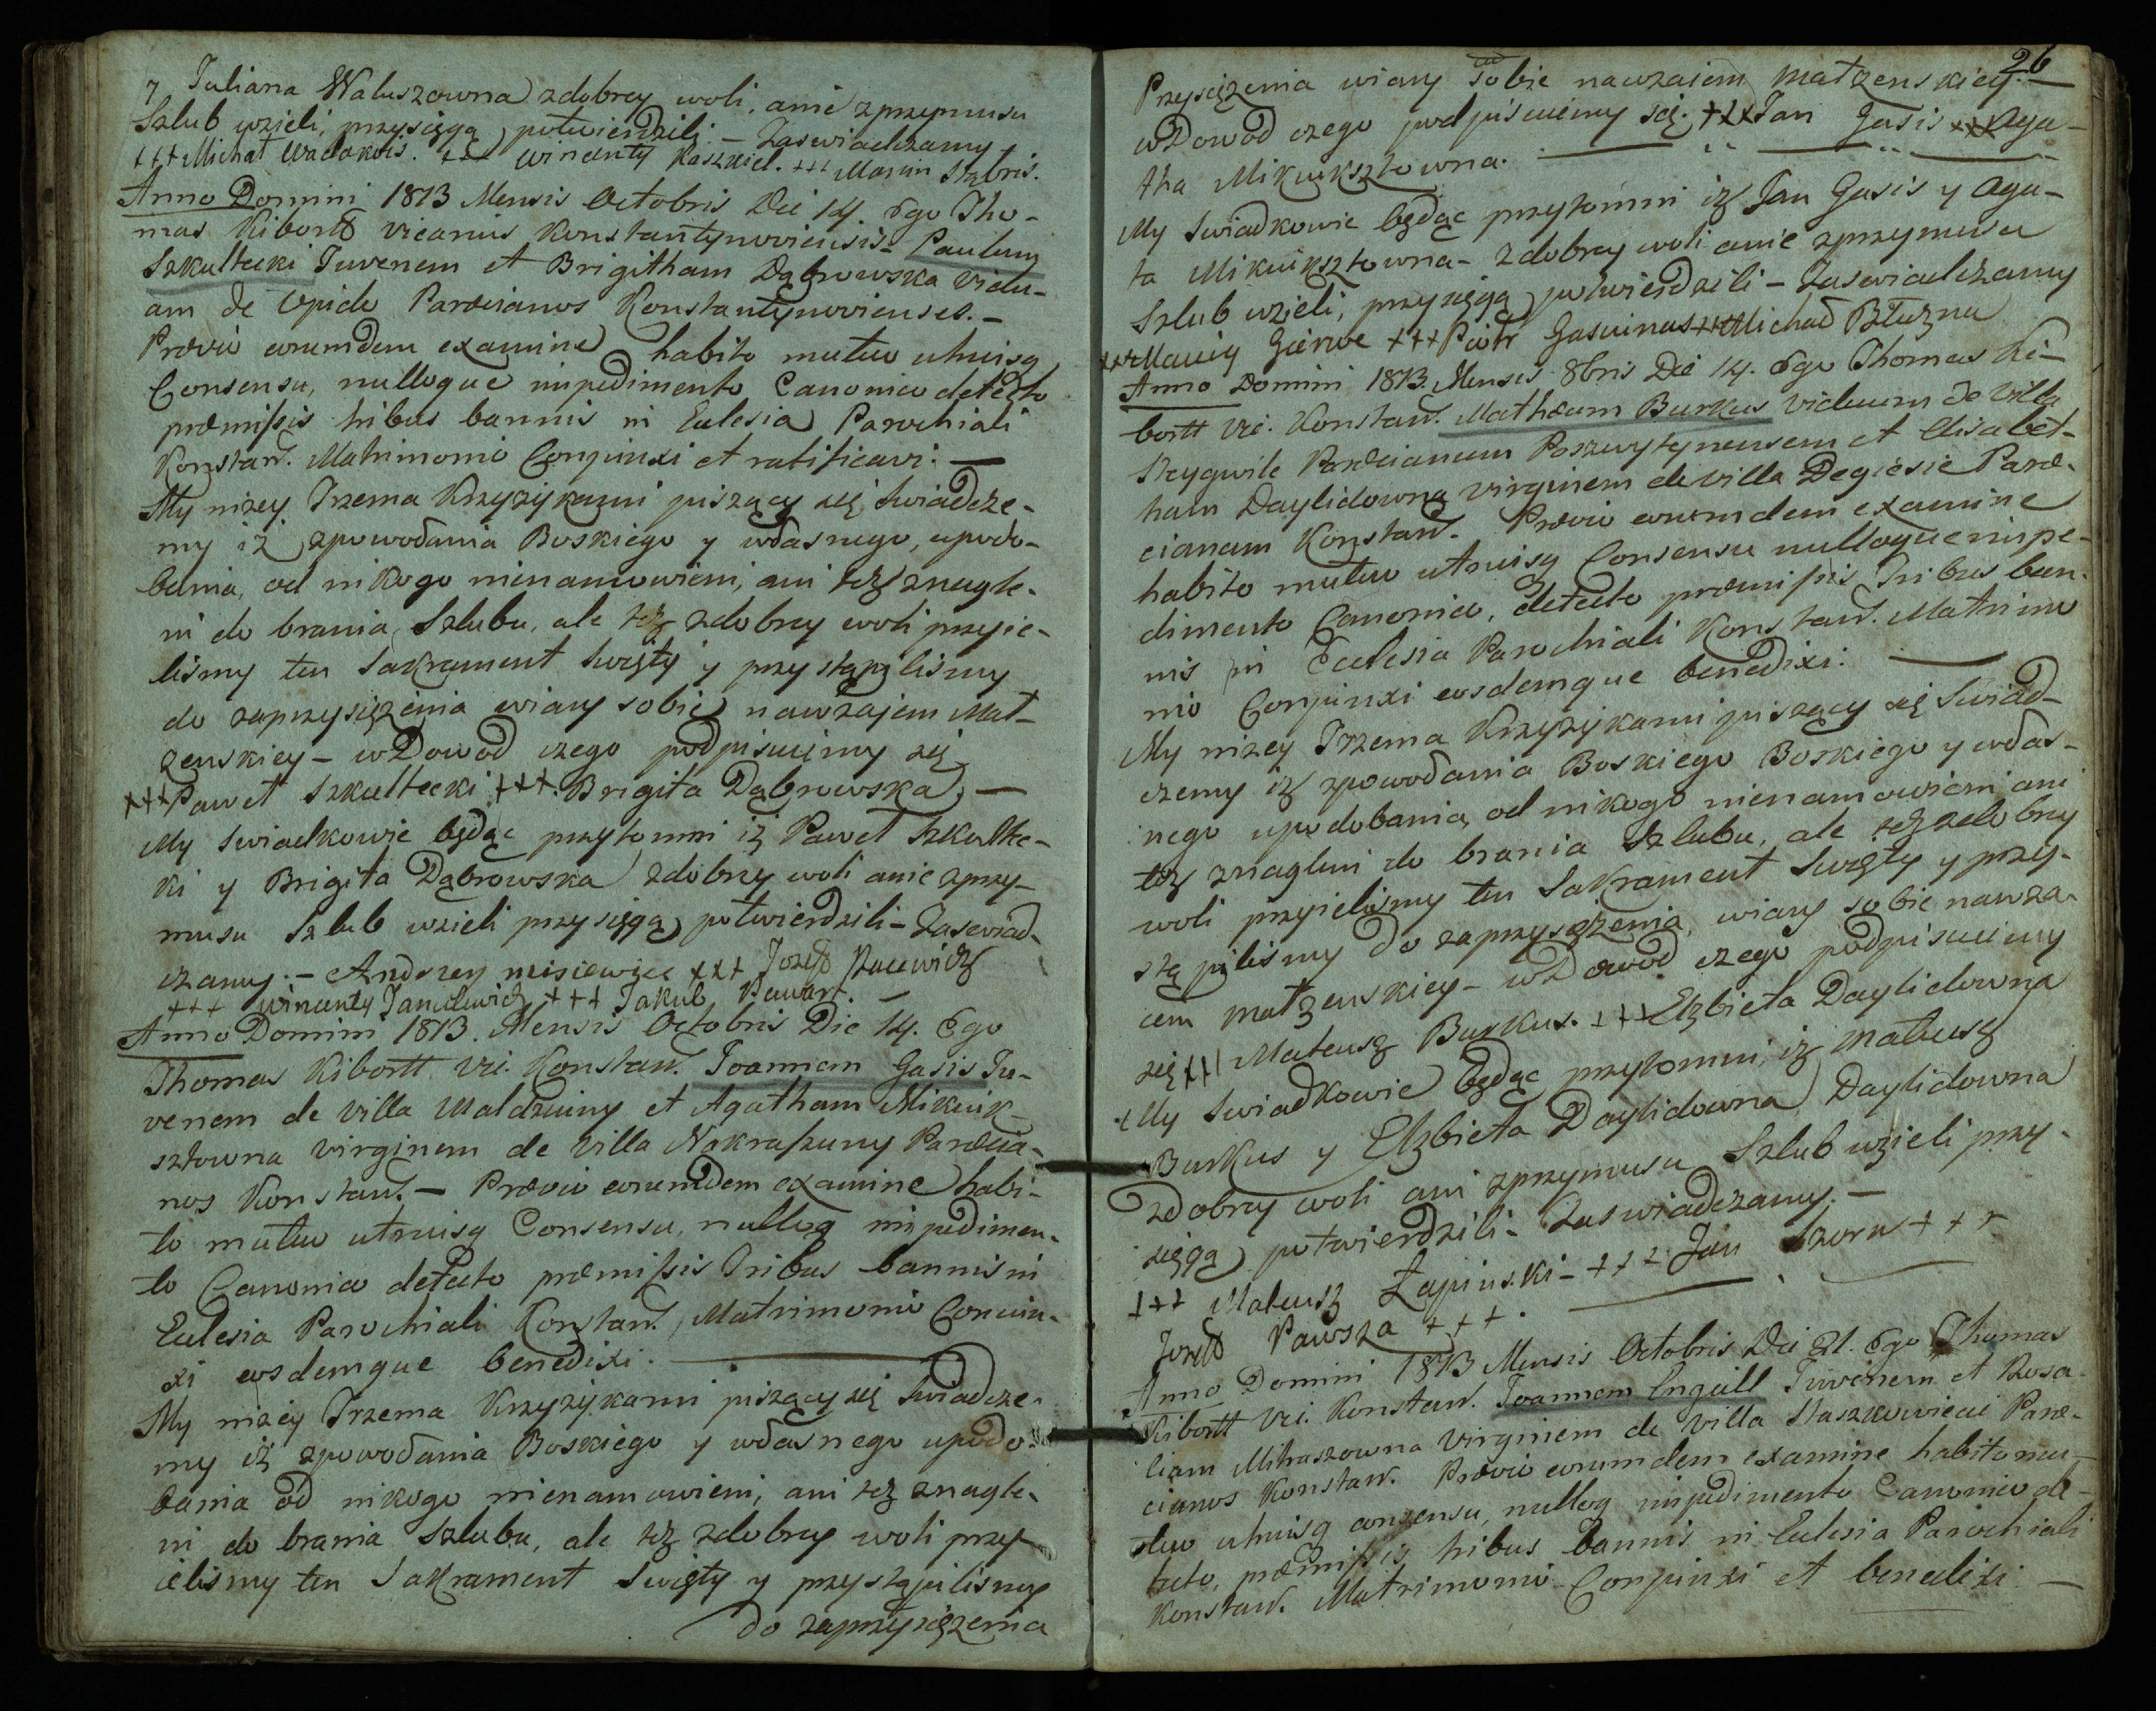 y Juliana Waluszowna zdobrey woli, anie zprzymusu
Szlub wzieli, przysięgą potwierdzili – Zaswiadczamy
+++ Michał Wadakois. +++ Wincenty Kaszkiel. +++ Marcin
Anno Domini 1813 Mensis Octobris Die 14. Ego Tho-
mas Kibortt vicarius Konstantynoviensis – Paulum
Szkultecki Juvenem et Brigitham Dąbrowska vidu-
am de Opido Parœcianos Konstantynovienses. –
Prævio eorumdem examine habito mutuo utriusq
Consensu, nulloque impedimento Canonico detecto
præmissis tribus bannis in Eclesia Parochiali
Konstant. Matrimonio Conjunxi et ratificavi. —
My niżey Trzema Krzyżykami piszący się Swiadcze-
my iż zpowołania Boskiego y własnego, upodo-
bania, od nikogo nienamowieni, ani też znagle-
ni do brania Szlubu, ale też zdobrey woli przyie-
lismy ten Sakrament Swięty y przystąpilismy
do zaprzysiężenia wiary sobie nawzajem Mał-
zenskiey – wDowod czego podpisuiemy się
+++ Paweł Szkultecki +++. Brigita Dąbrowska, —
My Swiadkowie będąc przytomni iż Paweł Szkulte-
ki y Brigita Dąbrowska zdobrey woli anie zprzy-
musu Szlub wzieli przysięgą potwierdzili – Zaswiad-
czamy. – Andrzey misiewicz +++ Jozeff Pacewicz
+++ Wincenty Janulewicz +++ Jakub Pewart. —
Anno Domini 1813. Mensis Octobris Die 14. Ego
Thomas Kibortt Vri. Konstant. Joannem Gasis Ju-
venem de Villa Waldziuny et Agatham Mikuik-
sztowna virginem de Villa Nokraszuny Parœcia-
nos Konstant. – Prævio eorumdem examine habi-
to mutuo utriusq Consensu, nulloq impedimen-
to Canonico detecto præmissis Tribus bannis in
Eclesia Parochiali Konstant. Matrimonio Conjun-
xi eosdemque benedixi. —
My niżey Trzema Krzyżykami piszący się Swiadcze-
my iż zpowołania Boskiego y własnego upodo-
bania od nikogo nienamowieni, ani też znagle-
ni do brania Szlubu, ale też zdobrey woli przy-
ielismy ten Sakrament Swięty y przystąpilismy
do zaprzysiężenia
26
Przysiężenia wiary sobie nawzaiem małzenskiey. —
wDowod czego podpisuiemy się. +++ Jan Gasis +++ Aga-
tha Mikuiksztowna. —
My Swiadkowie będąc przytomni iż Jan Gasis y Aga-
ta Mikuiksztowna – zdobrey woli anie zprzymusu
Szlub wzieli, przysięgą potwierdzili – Zaswiadczamy
+++ Maciey Gierwe +++ Piotr Gasiunas +++ Michał Błuzna
Anno Domini 1813. Mensis 8bris Die 14. Ego Thomas Ki-
bortt Vri. Konstant. Mathæum Burkus viduum de Villa
Szygwile Parœcianum Poszwytynensem et Elisabet-
ham Daylidowna virginem de villa Degiesie Paræ-
cianam Konstant. Prævio eorumdem examine
habito mutuo utriusq Consensu nulloque impe-
dimento Canonico, detecto præmissis Tribus ban-
nis in Ecclesia Parochiali Konstant. Matrimo
nio Conjunxi eosdemque benedixi. —
My niżey Trzema Krzyżykami piszący się Swiad-
czemy iż zpowołania Boskiego Boskiego y włas-
nego upodobania, od nikogo nienamowieni ani
też znagleni do brania Szlubu, ale też zdobrey
woli przyielismy ten Sakrament Swięty y przy-
stąpilismy do zaprzysiężenia wiary sobie nawza-
iem małzenskiey – wDowod czego podpisuiemy
się +++ Mateusz Burkus. +++ Elżbieta Daylidowna
My Swiadkowie będąc przytomni, iż Mateusz
Burkus y Elżbieta Daylidowna Daylidowna
zdobrey woli ani zprzymusu Szlub wzieli przy-
sięgą potwierdzili – Zaswiadczamy. —
+++ Mateusz Łapinski – +++ Jan Skora +++
Jozeff Pawsza +++.
Anno Domini 1813 Mensis Octobris Die 21. Ego Thomas
Kibortt Vri. Konstant. Joannem Engiell Juvenem et Rosa-
liam Mitraszowna virginem de villa Staszkowicie Paræ-
cianos Konstant. Prævio eorumdem examine habito mu-
tuo utriusq consensu, nulloq impedimento Canonico de-
tecto, præmissis tribus bannis in Eclesia Parochiali
Konstant. Matrimonio Conjunxi et benedixi —